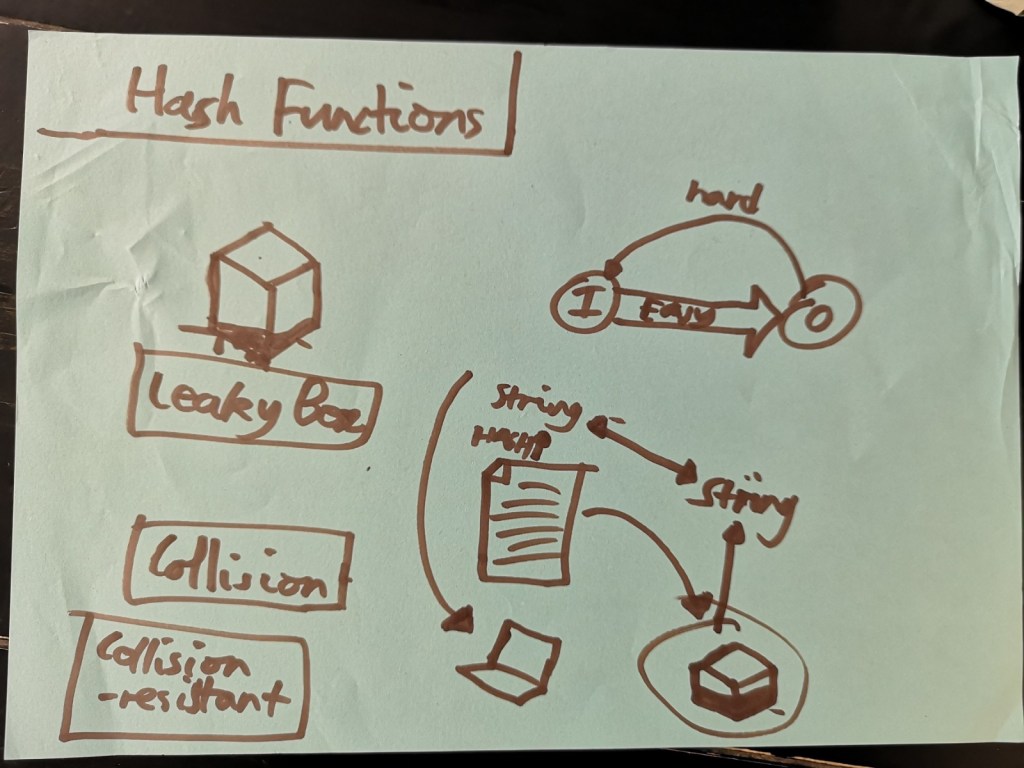 Hash Functions
hard
I Easy O
Leaky Box
string
HASH
string
Collision
Collision
-resistant